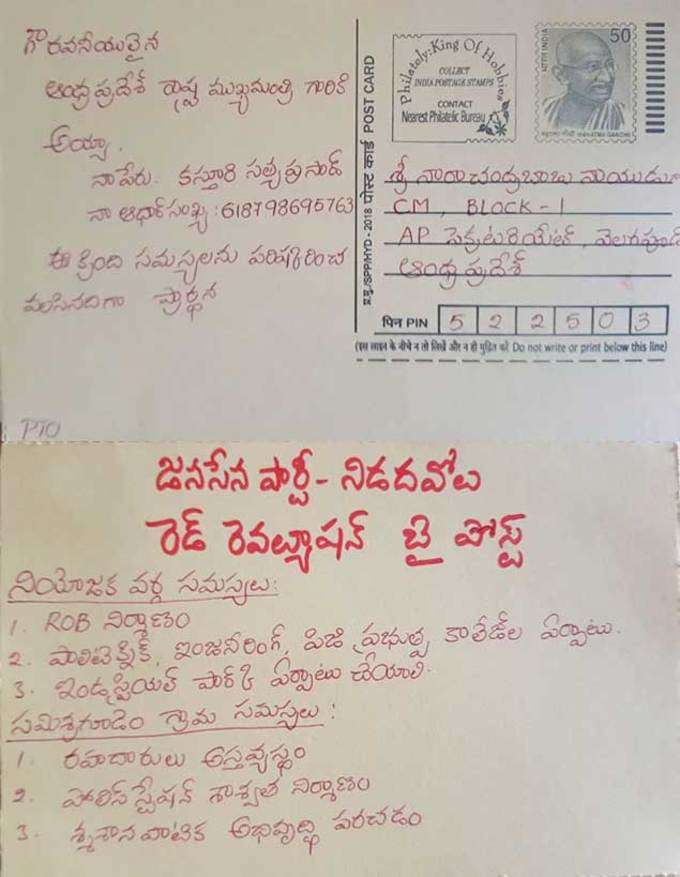 గౌరవనీయులైన
ఆంధ్రప్రదేశ్ రాష్ట్ర ముఖ్యమంత్రి గారికి
అయ్యా.
నా పేరు. కస్తూరి సత్యప్రసాద్
నా ఆధార్ సంఖ్య: 618798695763
ఈ క్రింది సమస్యలను పరిష్కరించ
వలసినదిగా ప్రార్థన
PTO
प.मु./SPP/HYD - 2018 पोस्ट कार्ड POST CARD
Philately: King Of Hobbies
COLLECT
INDIA POSTAGE STAMPS
CONTACT
Nearest Philatelic Bureau
भारत INDIA
50
महात्मा गाँधी MAHATMA GANDHI
శ్రీ నారా చంద్రబాబు నాయుడు
CM, BLOCK - 1
AP సెక్రటరియేట్, వెలగపూడి
ఆంధ్ర ప్రదేశ్
पिन PIN 5 2 2 5 0 3
(इस लाइन के नीचे न तो लिखें और न ही मुद्रित करें Do not write or print below this line)
జనసేన పార్టీ - నిడదవోలు
రెడ్ రెవల్యూషన్ బై పోస్ట్
నియోజక వర్గ సమస్యలు:
1. ROB నిర్మాణం
2. పాలిటెక్నిక్, ఇంజనీరింగ్, పిజి ప్రభుత్వ కాలేజీల ఏర్పాటు.
3. ఇండస్ట్రియల్ పార్క్ ఏర్పాటు చేయాలి.
సమిశ్రగూడెం గ్రామ సమస్యలు:
1. రహదారులు అస్తవ్యస్థం
2. పోలీస్ స్టేషన్ శాశ్వత నిర్మాణం
3. శ్మశానవాటిక అభివృద్ధి పరచడం